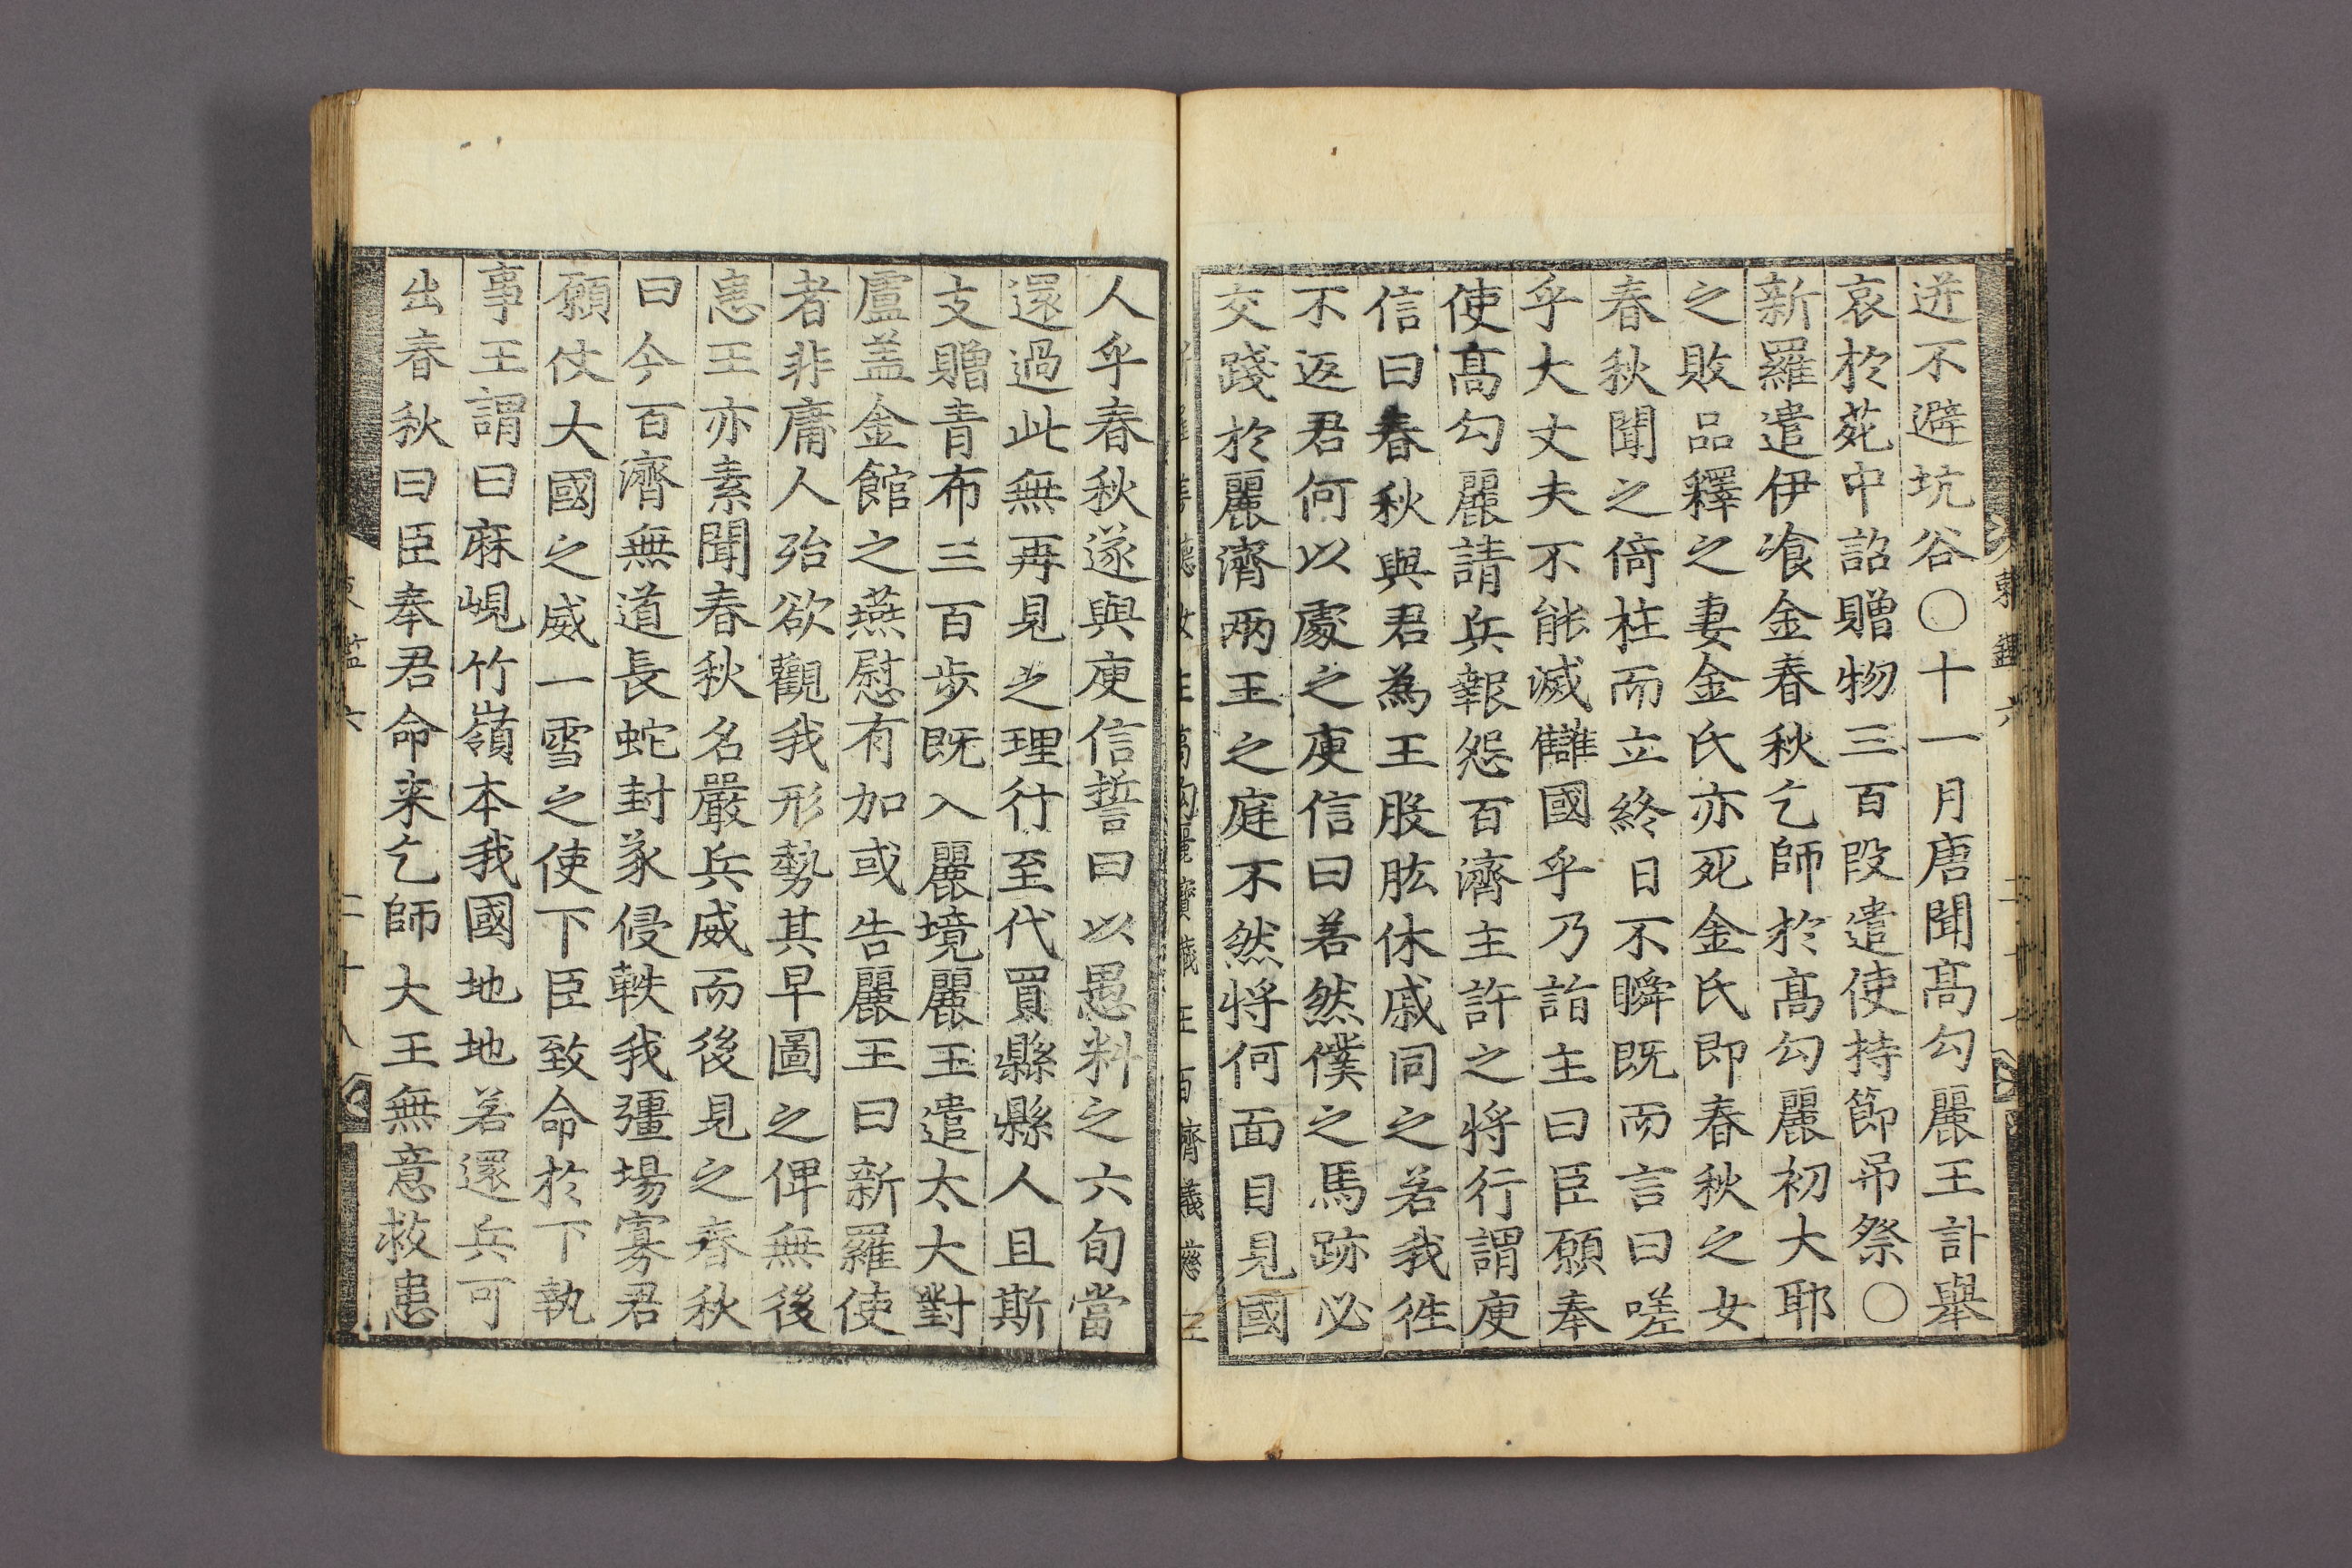 迸不避坑谷○十一月唐聞髙勾麗王訃舉
哀於苑中詔贈物三百段遣使持節吊祭○
新羅遣伊飡金春秋乞師於髙勾麗初大耶
之敗品釋之妻金氏亦死金氏即春秋之女
春秋聞之倚柱而立終日不瞬既而言曰嗟
乎大丈夫不能滅讎國乎乃詣主曰臣願奉
使髙勾麗請兵報怨百濟主許之將行謂庾
信曰春秋與君為王股肱休戚同之若我徃
不返君何以處之庾信曰若然僕之馬跡必
交踐於麗濟两王之庭不然將何面目見國
人乎春秋遂與庾信誓曰以愚料之六旬當
還過此無再見之理行至代買縣縣人且斯
支贈青布三百歩既入麗境麗王遣太大對
盧盖金館之燕慰有加或告麗王曰新羅使
者非庸人殆欲觀我形勢其早圖之俾無後
患王亦素聞春秋名嚴兵威而後見之春秋
曰今百濟無道長蛇封豕侵軼我疆場寡君
願仗大國之威一雪之使下臣致命於下執
事王謂曰麻峴竹嶺本我國地地若還兵可
出春秋曰臣奉君命来乞師大王無意救患